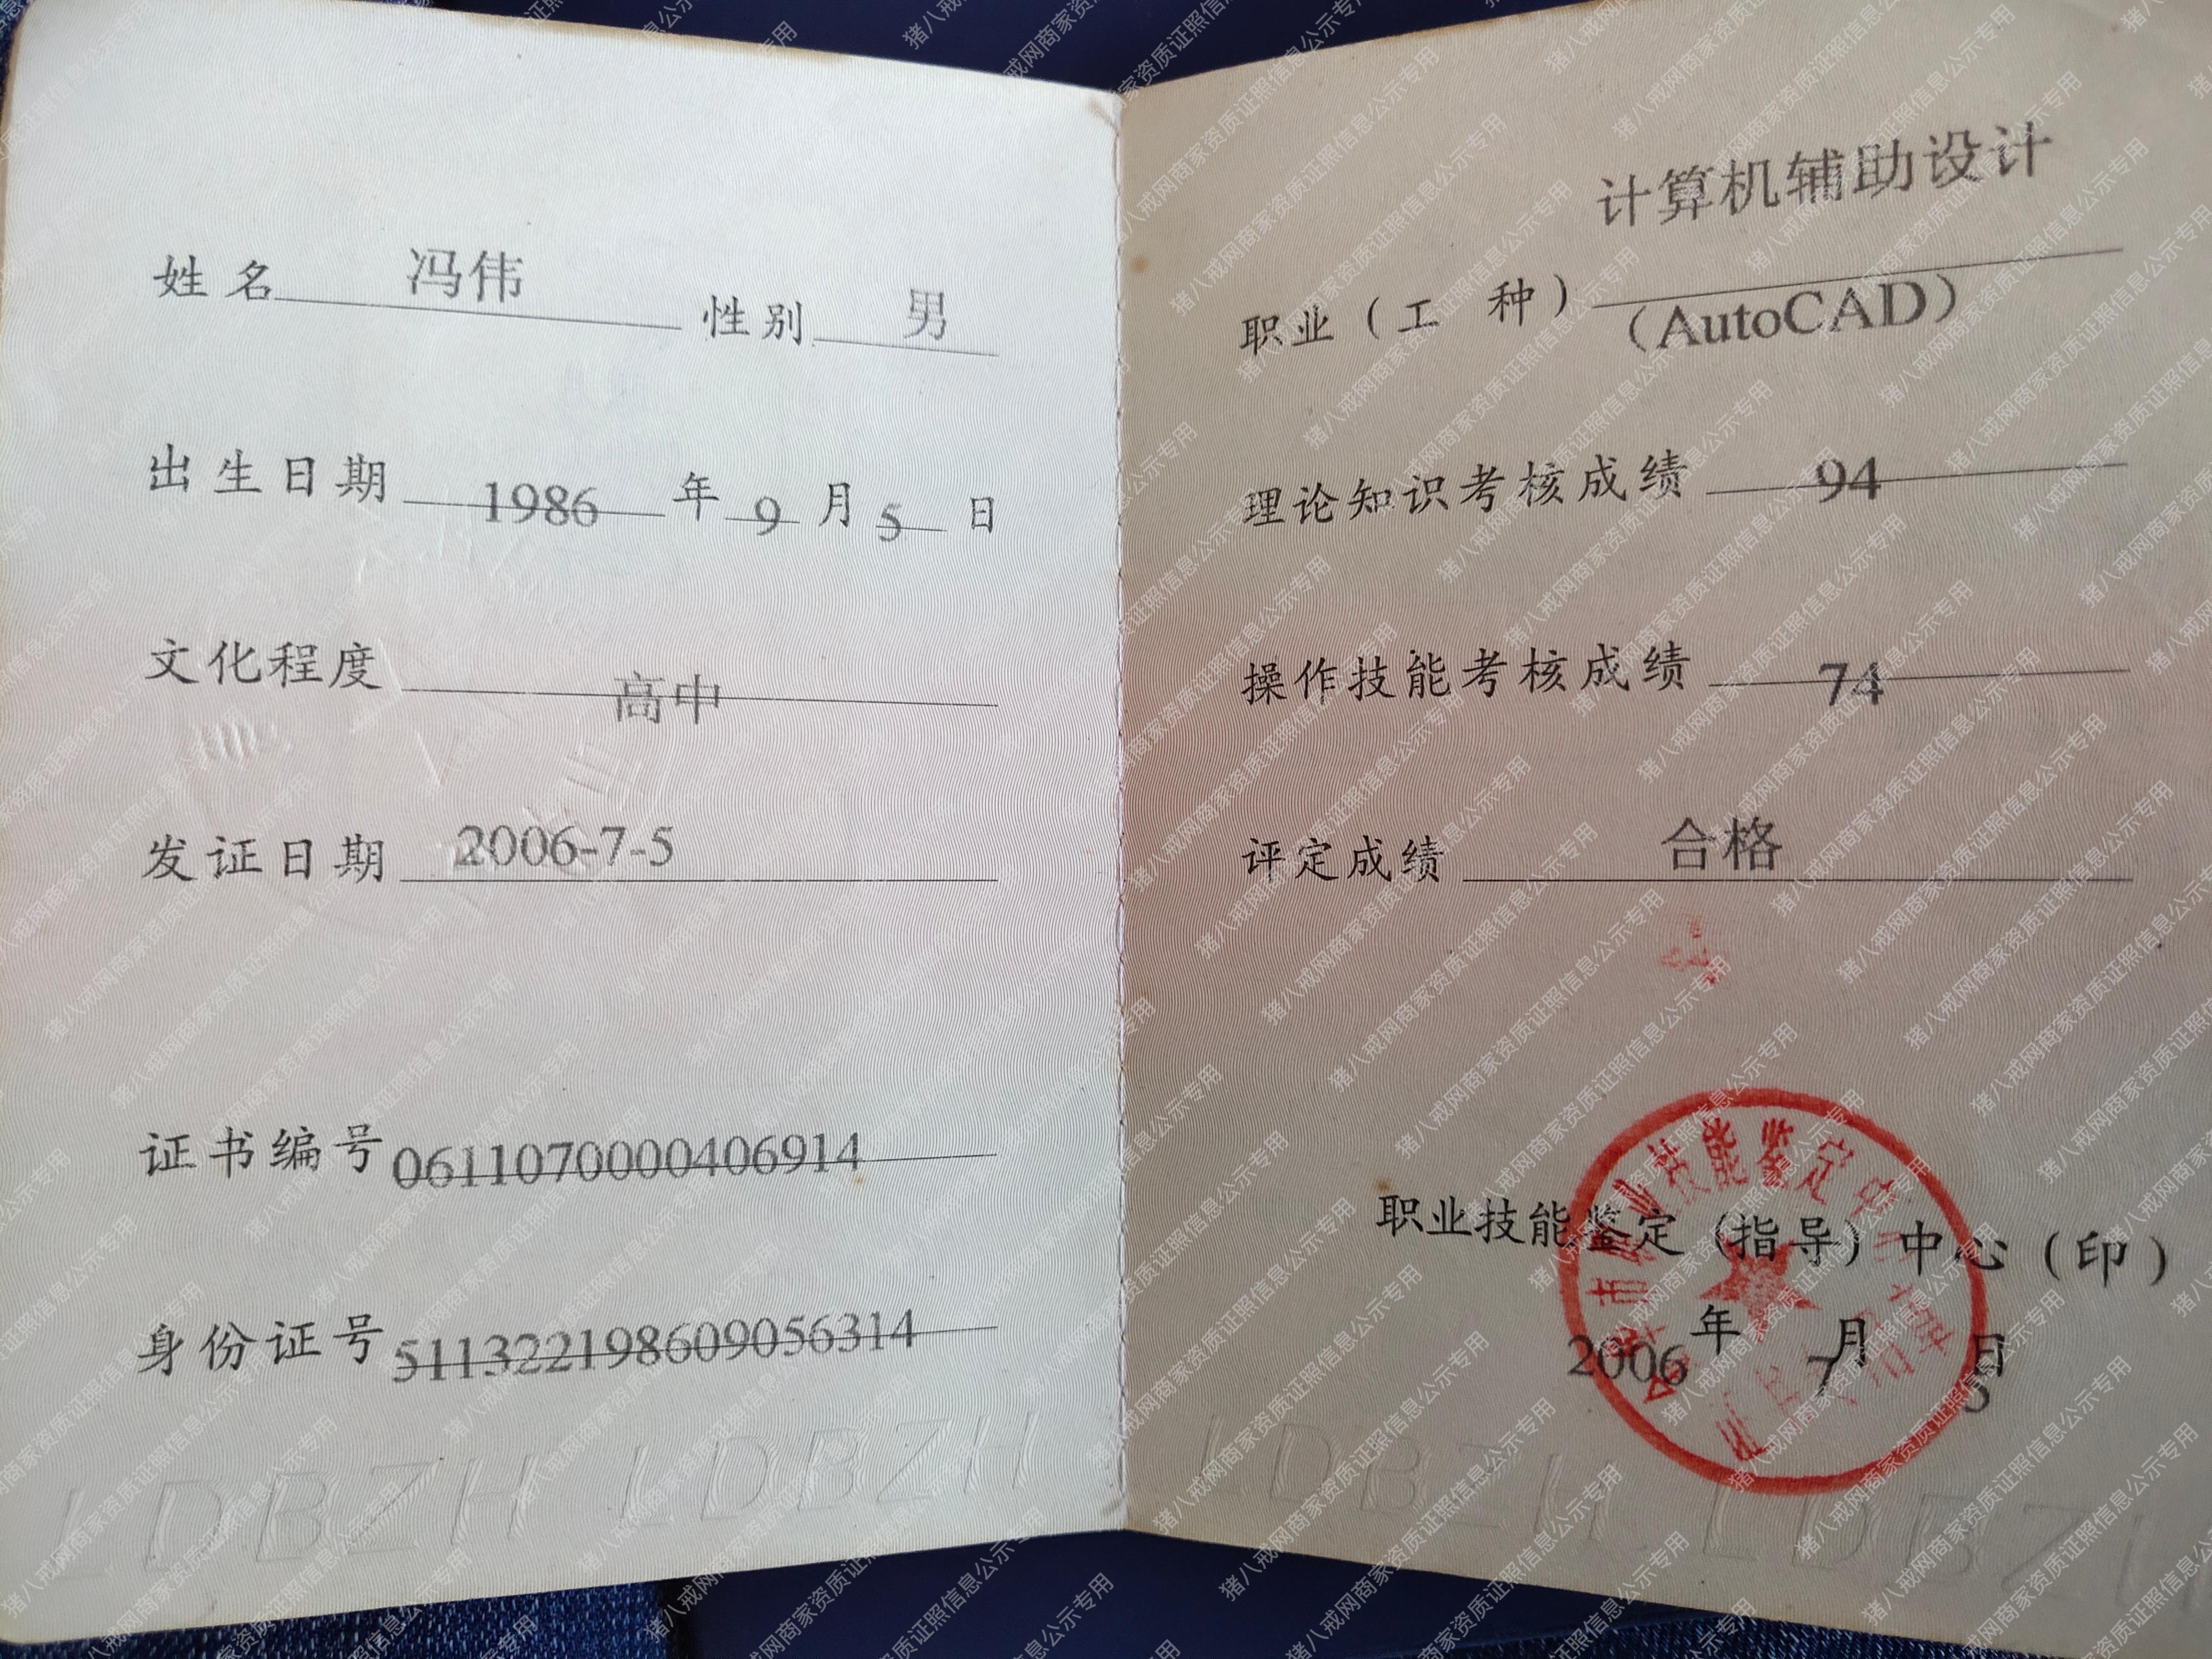 姓名 冯伟 性别 男
出生日期 1986 年 9 月 5 日
文化程度 高中
发证日期 2006-7-5
证书编号 0611070000406914
身份证号 511322198609056314
LDBZH LDBZH
计算机辅助设计
职业（工 种）（AutoCAD）
理论知识考核成绩 94
操作技能考核成绩 74
评定成绩 合格
职业技能鉴定（指导）中心（印）
2006 年 7 月 5 日
LDBZH LDBZH
猪八戒网商家资质证照信息公示专用